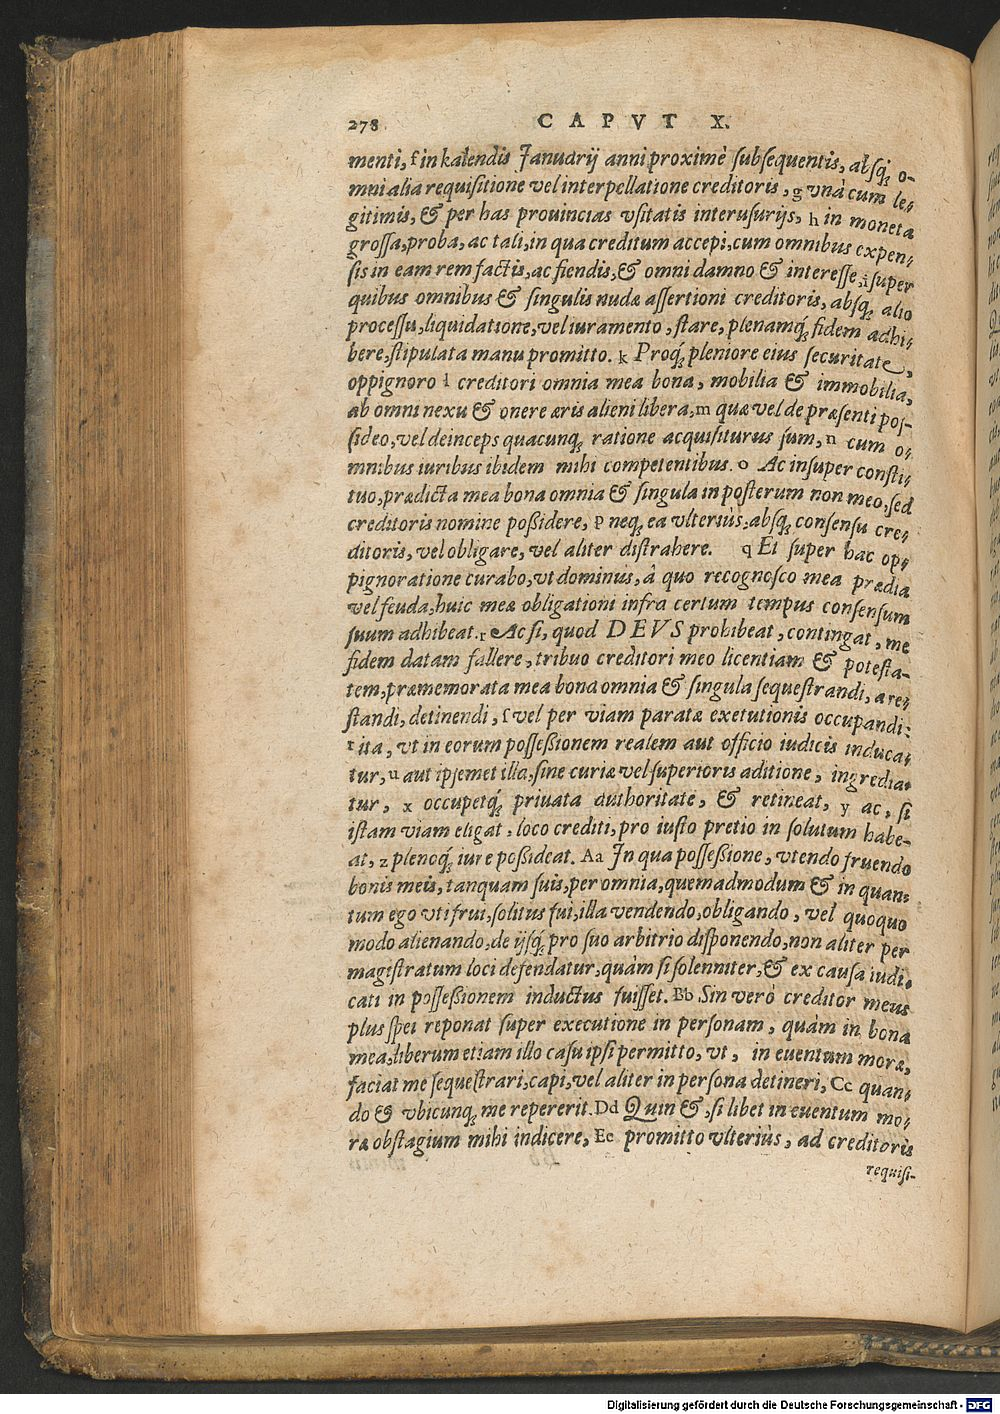 278 CAPVT X.
menti, f in kalendis Januarij anni proximè ſubſequentis, abſq́; o-
mni alia requiſitione vel interpellatione creditoris, g vnà cum le-
gitimis, & per has prouincias vſitatis interuſurijs, h in moneta
groſſa, proba, ac tali, in qua creditum accepi, cum omnibus expen-
ſis in eam rem factis, ac fiendis, & omni damno & intereſſe, i ſuper
quibus omnibus & ſingulis nudæ aſſertioni creditoris, abſq́; alio
proceſſu, liquidatione, vel iuramento, ſtare, plenamq́; fidem adhi-
bere, ſtipulata manu promitto. k Proq́; pleniore eius ſecuritate,
oppignoro l creditori omnia mea bona, mobilia & immobilia,
ab omni nexu & onere æris alieni libera, m quæ vel de præſenti poſ-
ſideo, vel deinceps quacunq́; ratione acquiſiturus ſum, n cum o-
mnibus iuribus ibidem mihi competentibus. o Ac inſuper conſti-
tuo, prædicta mea bona omnia & ſingula in poſterum non meo, ſed
creditoris nomine poßidere, p neq́; ea vlteriùs, abſq́; conſenſu cre-
ditoris, vel obligare, vel aliter diſtrahere. q Et ſuper hac op-
pignoratione curabo, vt dominus, à quo recognoſco mea prædia
vel feuda, huic meæ obligationi infra certum tempus conſenſum
ſuum adhibeat. r Ac ſi, quod DEVS prohibeat, contingat, me
fidem datam fallere, tribuo creditori meo licentiam & poteſta-
tem, præmemorata mea bona omnia & ſingula ſequeſtrandi, are-
ſtandi, detinendi, ſ vel per viam paratæ exetutionis occupandi:
t ita, vt in eorum poſſeßionem realem aut officio iudicis induca-
tur, u aut ipſemet illa, ſine curiæ vel ſuperioris aditione, ingredia-
tur, x occupetq́; priuata authoritate, & retineat, y ac, ſi
iſtam viam eligat, loco crediti, pro iuſto pretio in ſolutum habe-
at, z plenoq́; iure poßideat. Aa In qua poſſeßione, vtendo fruendo
bonis meis, tanquam ſuis, per omnia, quemadmodum & in quan-
tum ego vti frui, ſolitus fui, illa vendendo, obligando, vel quoquo
modo alienando, de ijſq́; pro ſuo arbitrio diſponendo, non aliter per
magiſtratum loci defendatur, quàm ſi ſolenniter, & ex cauſa iudi-
cati in poſſeßionem inductus fuiſſet. Bb Sin verò creditor meus
plus ſpei reponat ſuper executione in perſonam, quàm in bona
mea, liberum etiam illo caſu ipſi permitto, vt, in euentum moræ,
faciat me ſequeſtrari, capi, vel aliter in perſona detineri, Cc quan-
do & vbicunq́; me repererit. Dd Quin &, ſi libet in euentum mo-
ræ obſtagium mihi indicere, Ee promitto vlteriùs, ad creditoris
requiſi-
Digitalisierung gefördert durch die Deutsche Forschungsgemeinschaft - DFG